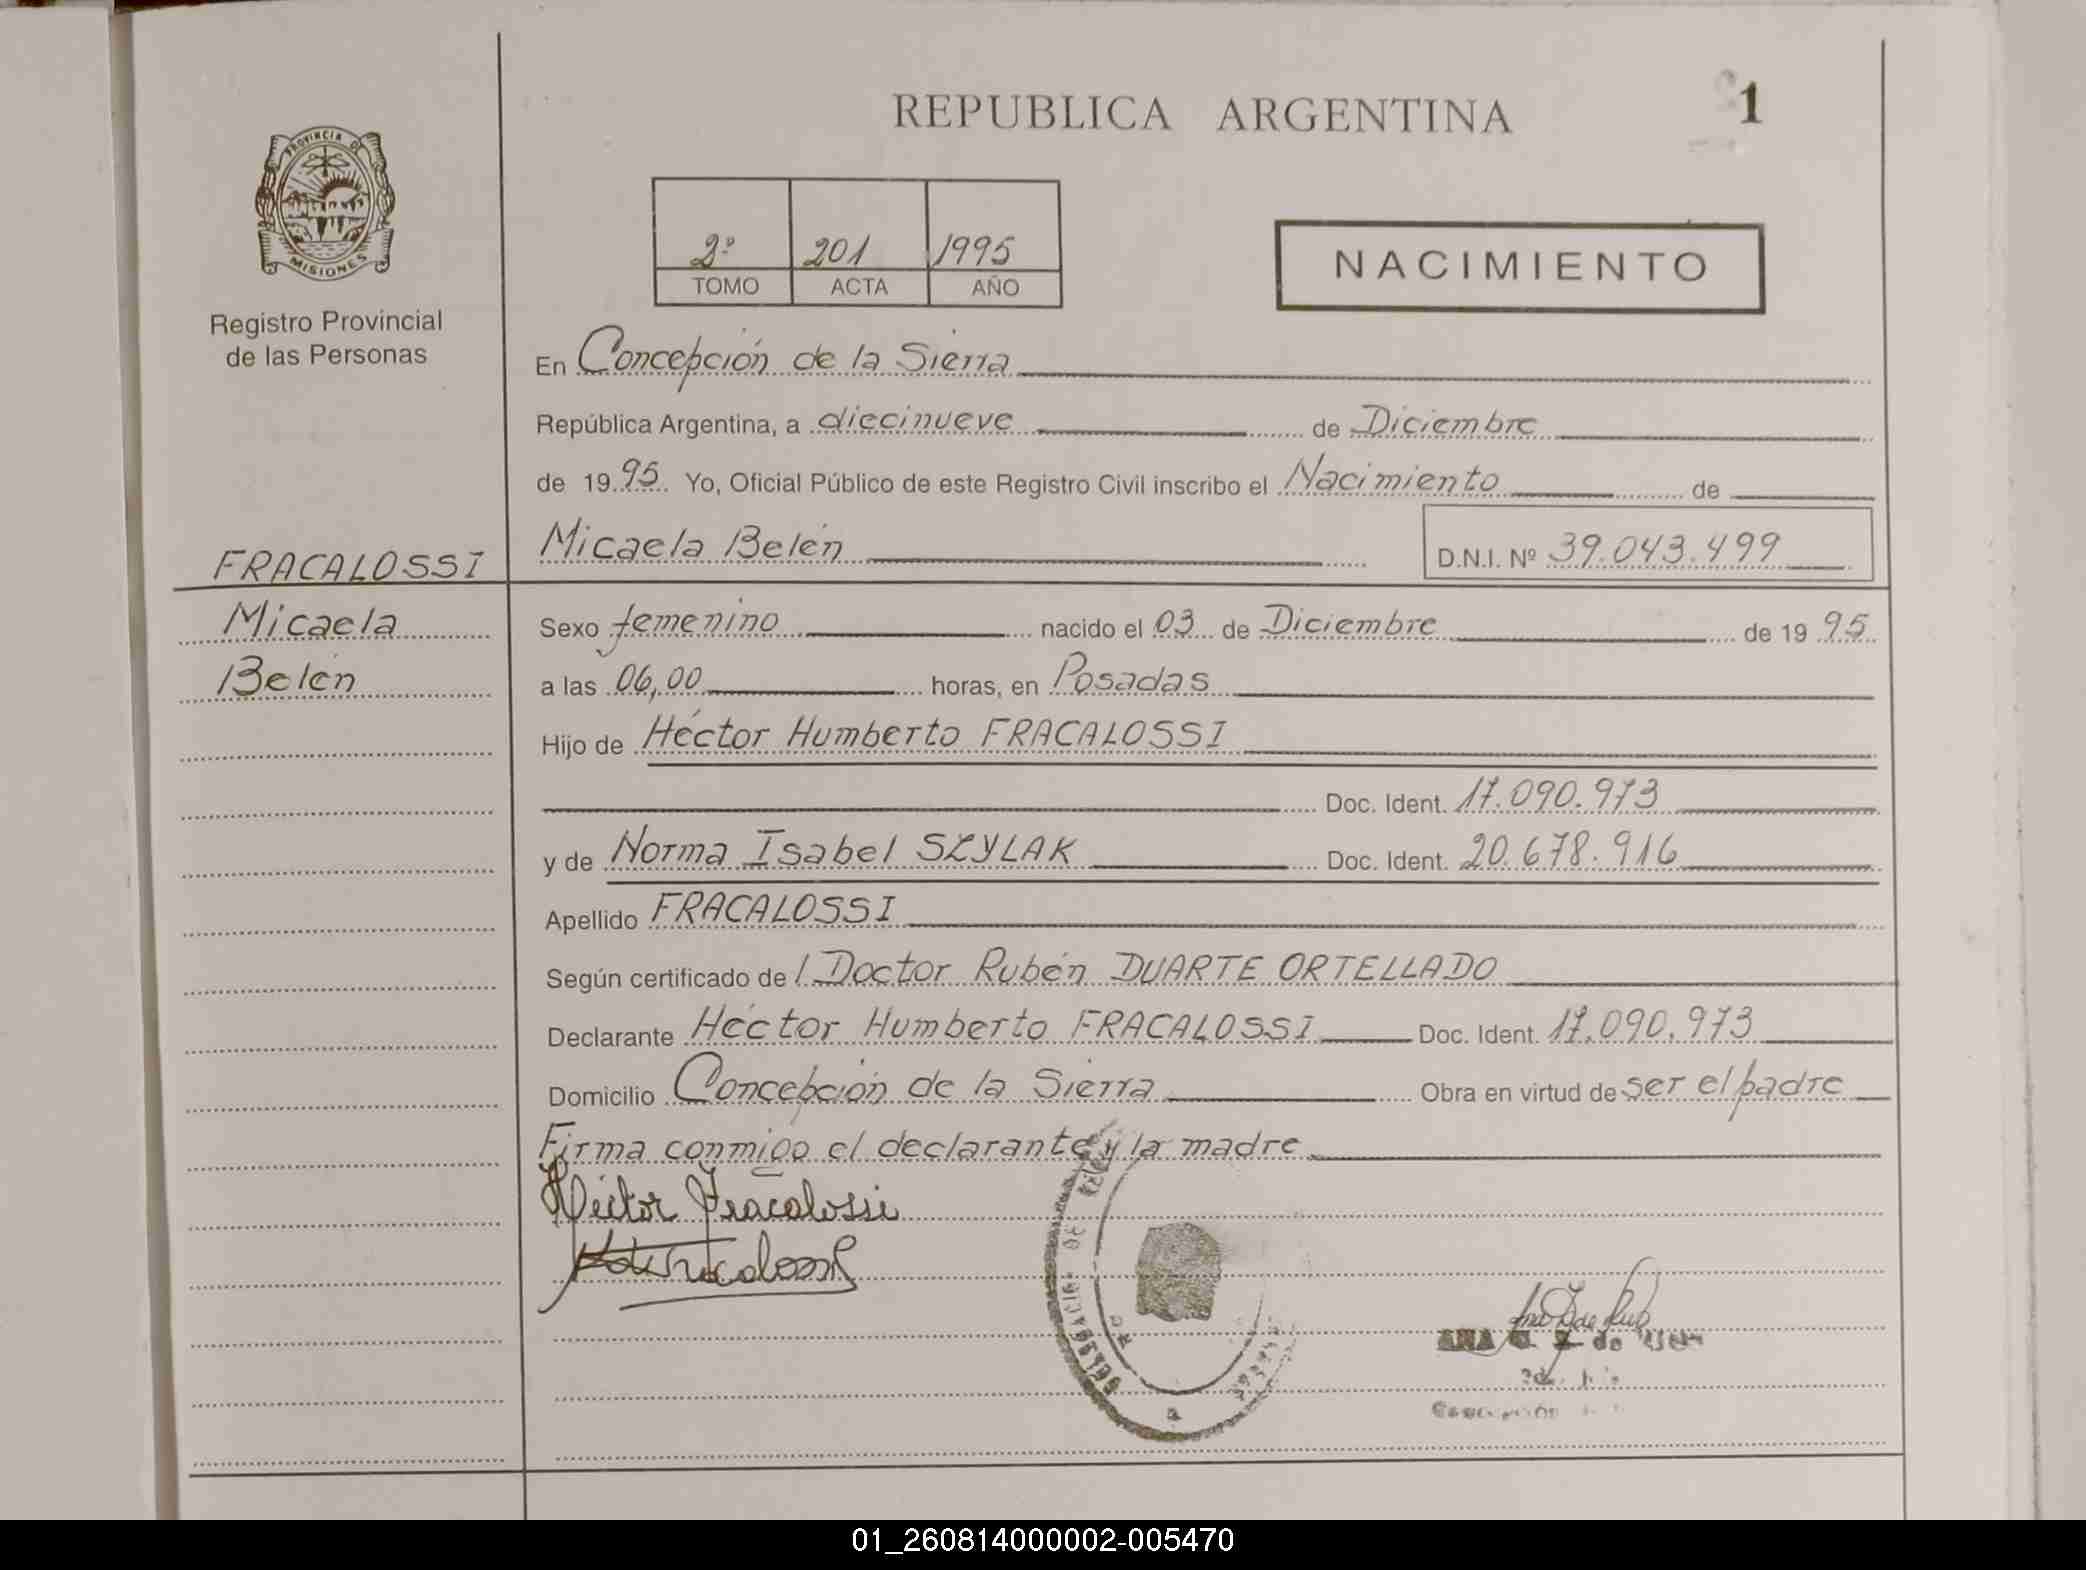 REPUBLICA ARGENTINA
1
PROVINCIA DE
MISIONES
Registro Provincial
de las Personas
2º 201 1995
TOMO ACTA AÑO
NACIMIENTO
En Concepción de la Sierra
República Argentina, a diecinueve de Diciembre
de 1995. Yo, Oficial Público de este Registro Civil inscribo el Nacimiento de
FRACALOSSI
Micaela Belén
D.N.I. Nº 39.043.499
Micaela
Belén
Sexo femenino nacido el 03 de Diciembre de 1995
a las 06,00 horas, en Posadas
Hijo de Héctor Humberto FRACALOSSI
Doc. Ident. 17.090.973
y de Norma Isabel SZYLAK Doc. Ident. 20.678.916
Apellido FRACALOSSI
Según certificado de l Doctor Rubén DUARTE ORTELLADO
Declarante Héctor Humberto FRACALOSSI Doc. Ident. 17.090.973
Domicilio Concepción de la Sierra Obra en virtud de ser el padre
Firma conmigo el declarante y la madre
Héctor Fracalossi
ANA de
01_260814000002-005470